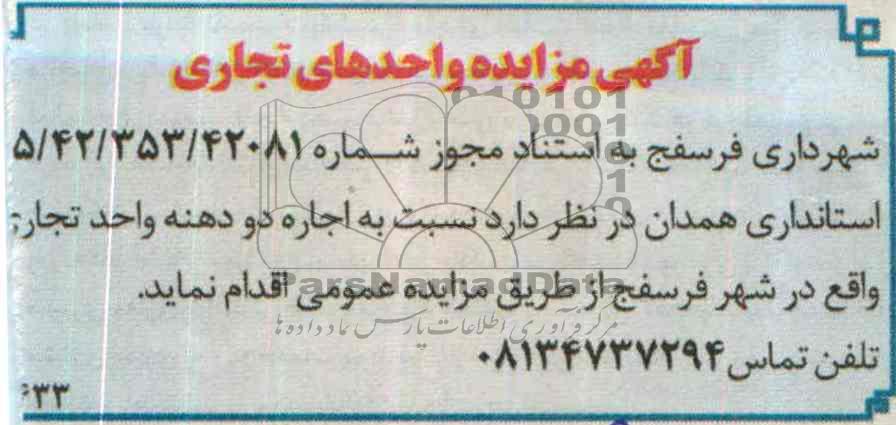 آگهی مزایده واحدهای تجاری
شهرداری فرسفج به استناد مجوز شماره ۵/۴۲/۳۵۳/۴۲۰۸۱
استانداری همدان در نظر دارد نسبت به اجاره دو دهنه واحد تجاری
واقع در شهر فرسفج از طریق مزایده عمومی اقدام نماید.
تلفن تماس ۰۸۱۳۴۷۳۷۲۹۴
ParsNamadData
مرکز فرآوری اطلاعات پارس نماد داده ها